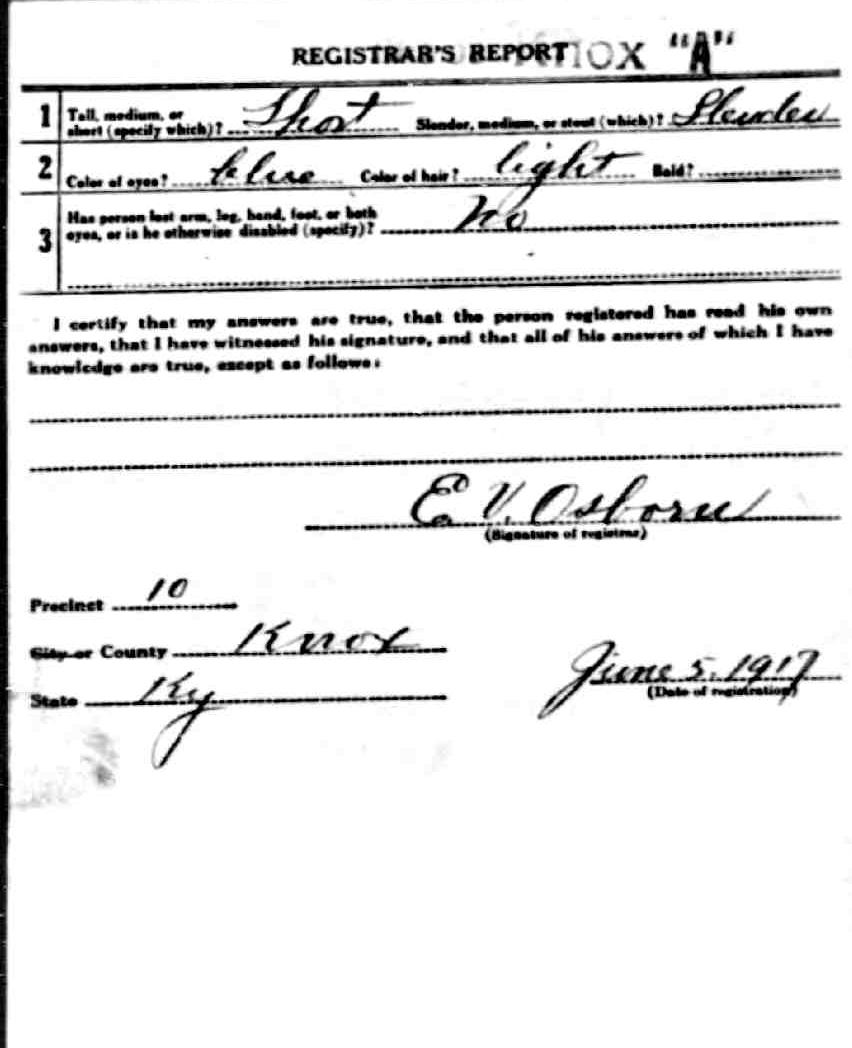 REGISTRAR'S REPORT KNOX "A"
1 Tall, medium, or short (specify which)? Short Slender, medium, or stout (which)? Slender
2 Color of eyes? blue Color of hair? light Bald?
3 Has person lost arm, leg, hand, foot, or both
eyes, or is he otherwise disabled (specify)? No
I certify that my answers are true, that the person registered has read his own
answers, that I have witnessed his signature, and that all of his answers of which I have
knowledge are true, except as follows:
E. V. Osborn
(Signature of registrar)
Precinct 10
City or County Knox
State Ky
June 5. 1917
(Date of registration)